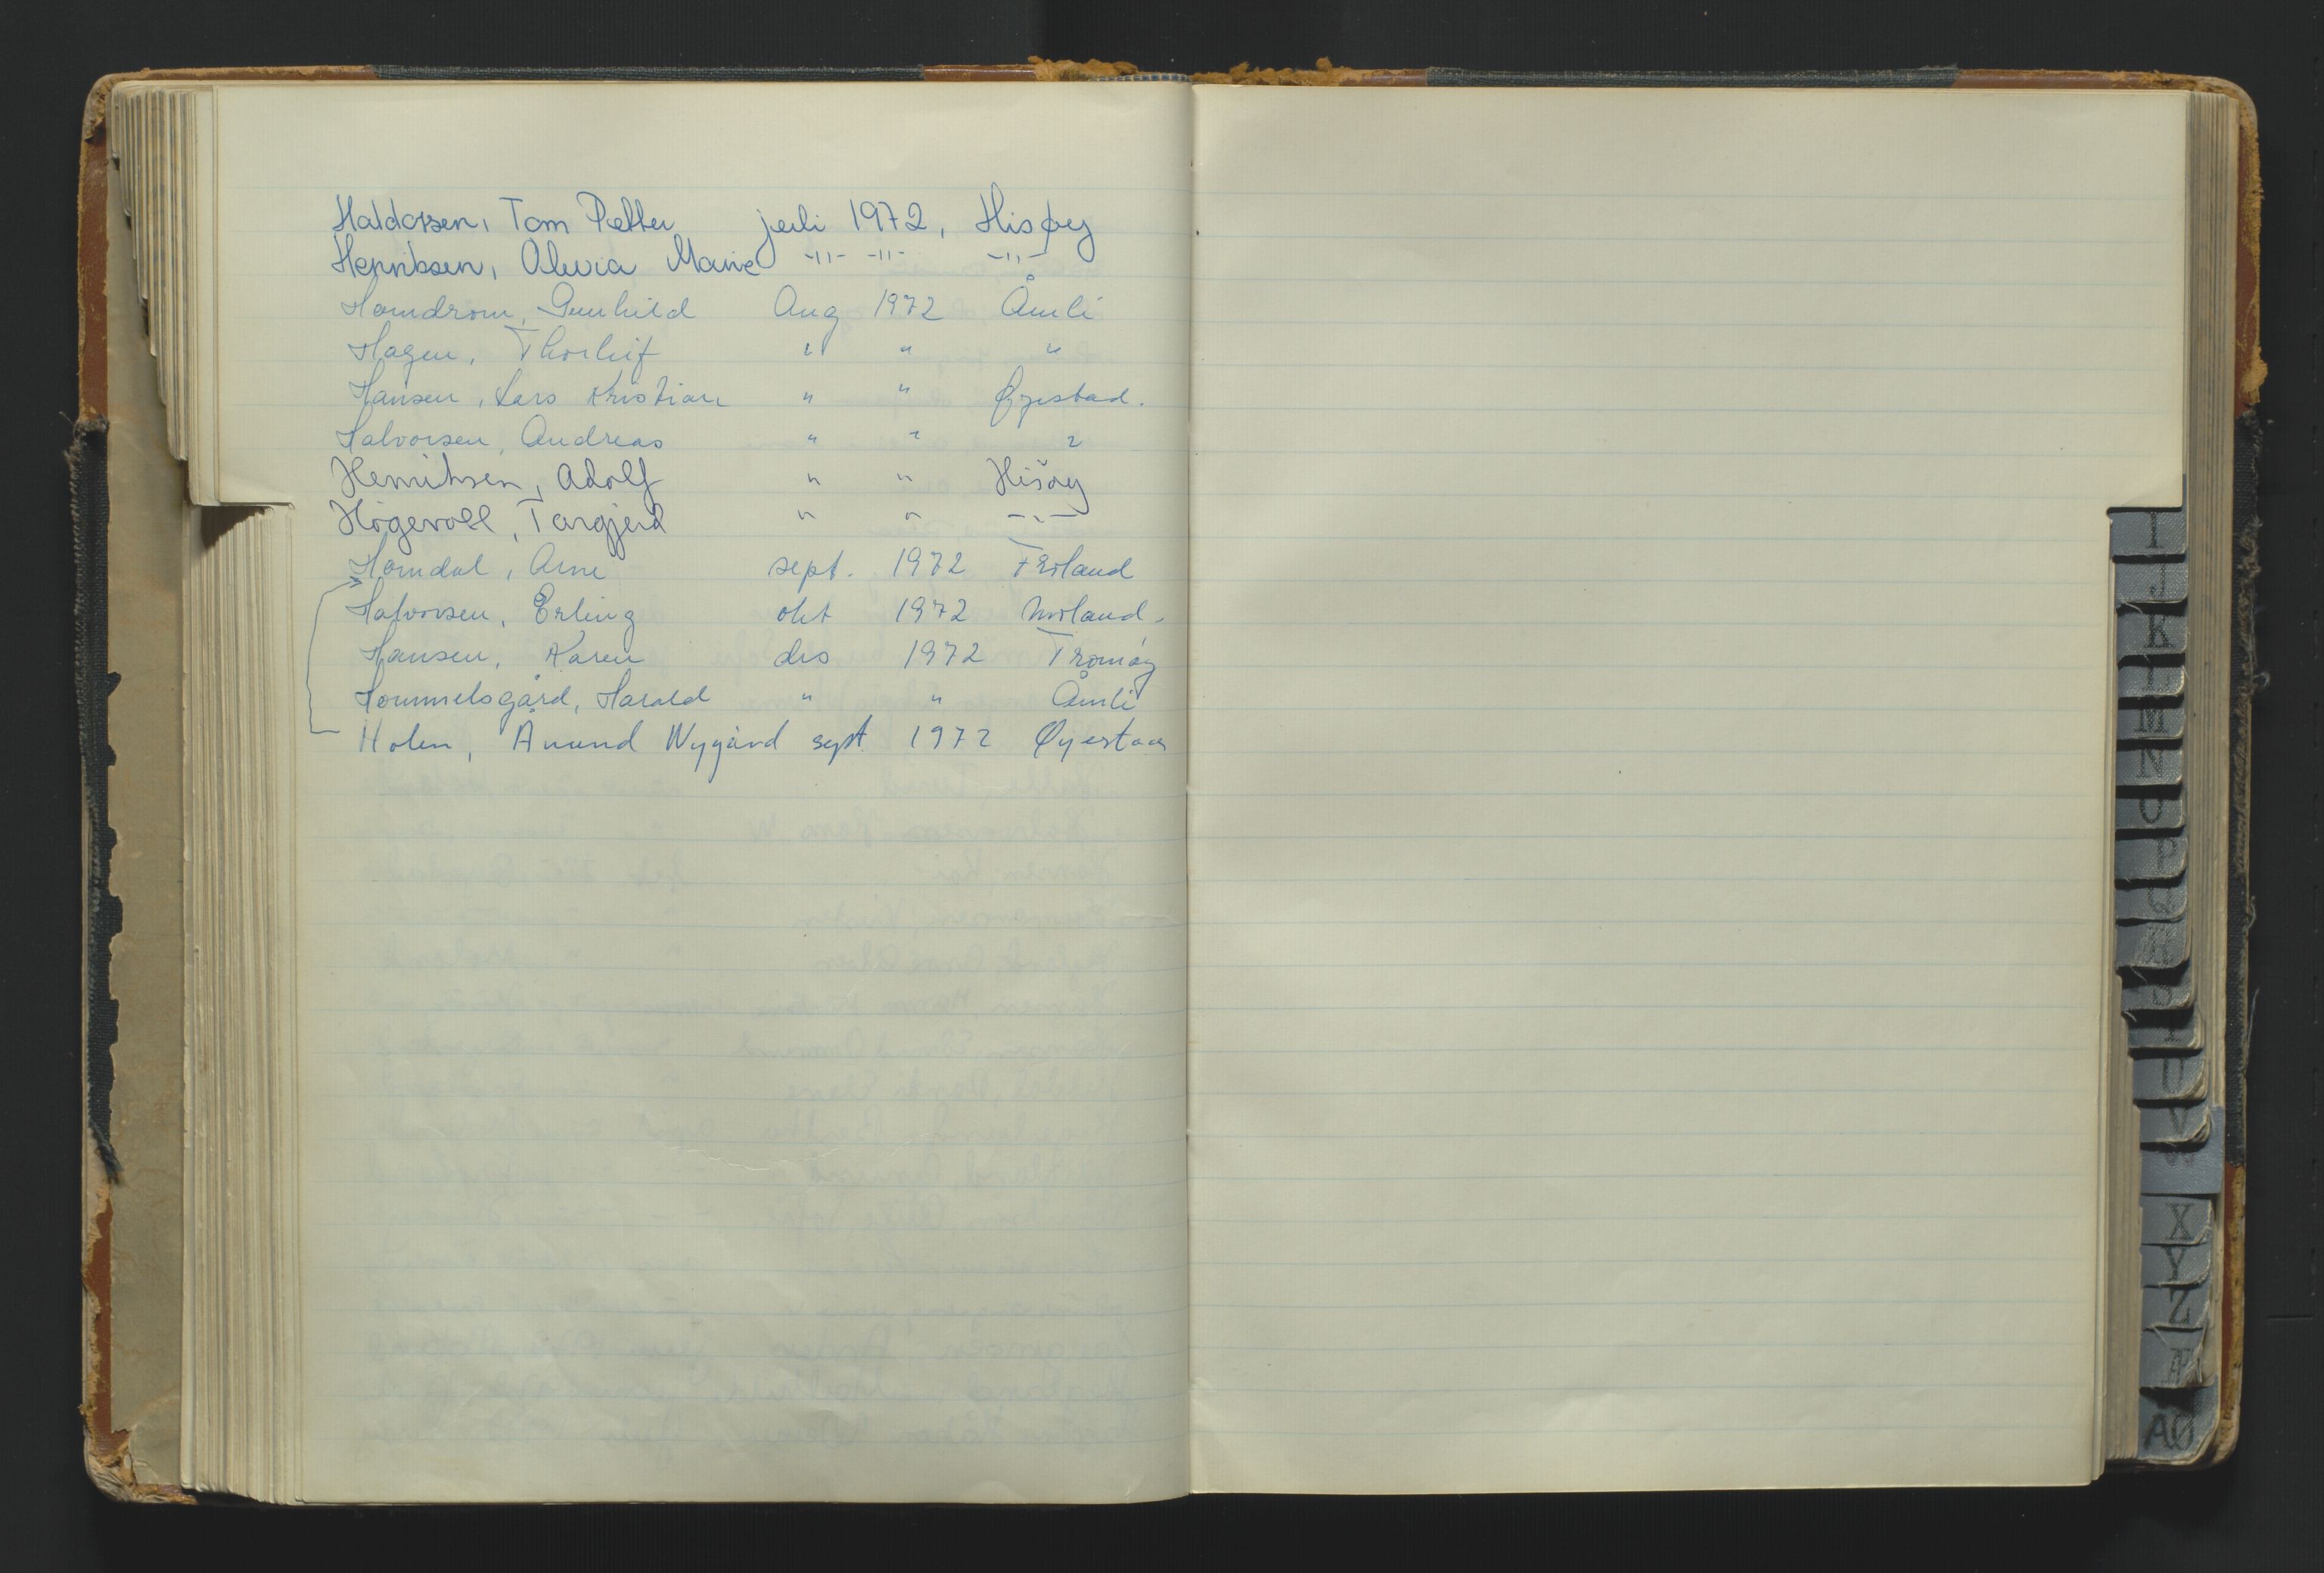 Haldorsen, Tom Petter juli 1972, Hisøy
Henriksen, Olevia Marie -"- -"- -"-
Homdrom, Gunhild Aug 1972 Åmli
Hagen, Thorleif " " "
Hansen, Lars Kristian " " Øyestad.
Halvorsen, Andreas " " "
Henriksen, Adolf " " Hisøy
Høgevoll, Torgjerd " " -"-
Homdal, Arne sept. 1972 Froland
Halvorsen, Erling okt 1972 Moland.
Hansen, Karen des 1972 Tromøy
Hommelsgård, Harald " " Åmli
Holen, Ånund Nygård sept 1972 Øyestad
I
J
K
L
M
N
O
P
Q
R
S
T
U
V
W
X
Y
Z
Æ
AØ